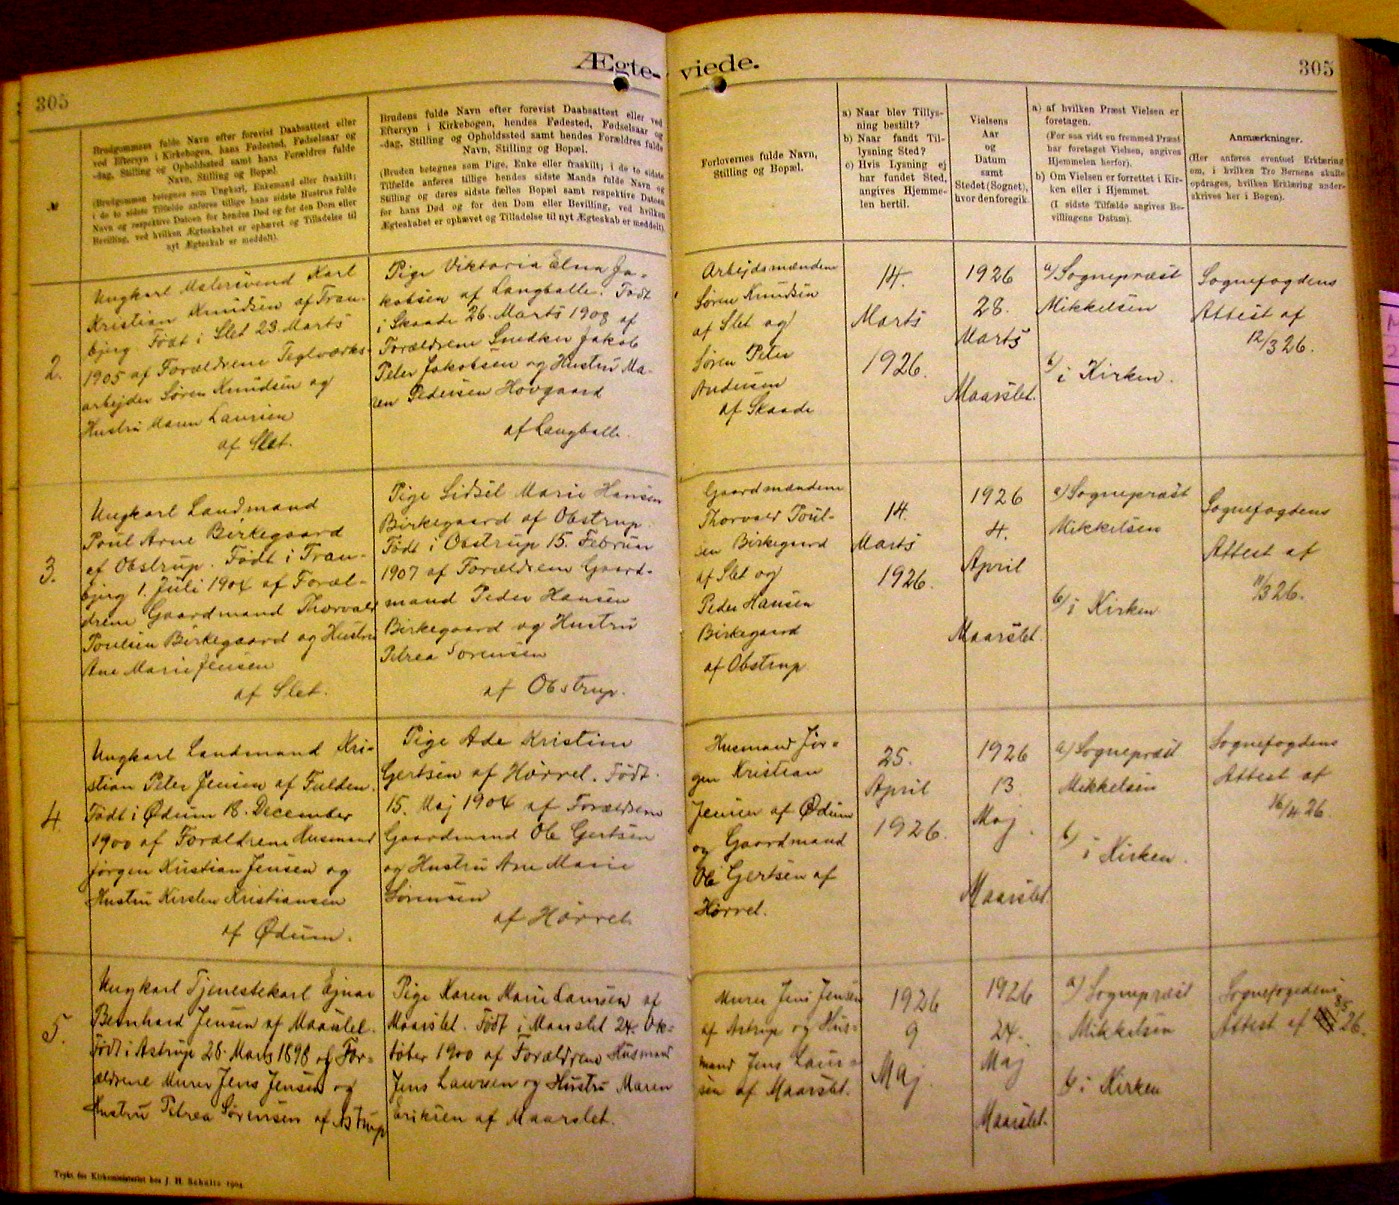 305
Ægte-
viede.
305
№
Brudgommens fulde Navn efter forevist Daabsattest eller
ved Eftersyn i Kirkebogen, hans Fødested, Fødselsaar og
-dag, Stilling og Opholdssted samt hans Forældres fulde
Navn, Stilling og Bopæl.
(Brudgommen betegnes som Ungkarl, Enkemand eller fraskilt;
i de to sidste Tilfælde anføres tillige hans sidste Hustrus fulde
Navn og respektive Datoen for hendes Død og for den Dom eller
Bevilling, ved hvilken Ægteskabet er ophævet og Tilladelse til
nyt Ægteskab er meddelt).
Brudens fulde Navn efter forevist Daabsattest eller ved
Eftersyn i Kirkebogen, hendes Fødested, Fødselsaar og
-dag, Stilling og Opholdssted samt hendes Forældres fulde
Navn, Stilling og Bopæl.
(Bruden betegnes som Pige, Enke eller fraskilt; i de to sidste
Tilfælde anføres tillige hendes sidste Mands fulde Navn og
Stilling og deres sidste fælles Bopæl samt respektive Datoen
for hans Død og for den Dom eller Bevilling, ved hvilken
Ægteskabet er ophævet og Tilladelse til nyt Ægteskab er meddelt).
Forlovernes fulde Navn,
Stilling og Bopæl.
a) Naar blev Tillys-
ning bestilt?
b) Naar fandt Til-
lysning Sted?
c) Hvis Lysning ej
har fundet Sted,
angives Hjemme-
len hertil.
Vielsens
Aar
og
Datum
samt
Stedet (Sognet),
hvor den foregik.
a) af hvilken Præst Vielsen er
foretagen.
(For saa vidt en fremmed Præst
har foretaget Vielsen, angives
Hjemmelen herfor).
b) Om Vielsen er forrettet i Kir-
ken eller i Hjemmet.
(I sidste Tilfælde angives Be-
villingens Datum).
Anmærkninger.
(Her anføres eventuel Erklæring
om, i hvilken Tro Børnene skulle
opdrages, hvilken Erklæring under-
skrives her i Bogen).
2.
Ungkarl Malersvend Karl
Kristian Knudsen af Tran-
bjerg. Født i Slet 23. Marts
1905 af Forældrene Teglværks-
arbejder Søren Knudsen og
Hustru Maren Laursen
af Slet.
Pige Viktoria Elna Ja-
kobsen af Langballe. Født
i Skaade 26. Marts 1908 af
Forældrene Snedker Jakob
Peter Jakobsen og Hustru Ma-
ren Pedersen Hovgaard
af Langballe.
Arbejdsmændene
Søren Knudsen
af Slet og
Søren Peter
Andersen
af Skaade
14.
Marts
1926.
1926
28.
Marts
Maarslet.
a) Sognepræst
Mikkelsen
b) i Kirken.
Sognefogdens
Attest af
12/3 26.
3.
Ungkarl Landmand
Poul Arne Birkegaard
af Obstrup. Født i Tran-
bjerg 1. Juli 1904 af Foræl-
drene Gaardmand Thorvald
Poulsen Birkegaard og Hustru
Ane Marie Jensen
af Slet.
Pige Sidsel Marie Hansen
Birkegaard af Obstrup.
Født i Obstrup 15. Februar
1907 af Forældrene Gaard-
mand Peder Hansen
Birkegaard og Hustru
Petrea Sørensen
af Obstrup.
Gaardmændene
Thorvald Poul-
sen Birkegaard
af Slet og
Peder Hansen
Birkegaard
af Obstrup
14.
Marts
1926.
1926
4.
April
Maarslet.
a) Sognepræst
Mikkelsen
b) i Kirken
Sognefogdens
Attest af
11/3 26.
4.
Ungkarl Landmand Kri-
stian Peter Jensen af Fulden.
Født i Ødum 18. December
1900 af Forældrene Husmand
Jørgen Kristian Jensen og
Hustru Kirsten Kristiansen
af Ødum.
Pige Ade Kristine
Gertsen af Hørret. Født
15. Maj 1904 af Forældrene
Gaardmand Ole Gertsen
og Hustru Ane Marie
Sørensen
af Hørret
Husmand Jør-
gen Kristian
Jensen af Ødum
og Gaardmand
Ole Gertsen af
Hørret.
25.
April
1926.
1926
13.
Maj.
Maarslet.
a) Sognepræst
Mikkelsen
b) i Kirken.
Sognefogdens
Attest af
16/4 26.
5.
Ungkarl Tjenestekarl Ejnar
Bernhard Jensen af Maarslet.
Født i Astrup 28. Marts 1898 af For-
ældrene Murer Jens Jensen og
Hustru Petrea Sørensen af Astrup
Pige Karen Marie Laursen af
Maarslet. Født i Maarslet 24. Ok-
tober 1900 af Forældrene Husmand
Jens Laursen og Hustru Maren
Eriksen af Maarslet.
Murer Jens Jensen
af Astrup og Hus-
mand Jens Laur-
sen af Maarslet.
1926
9
Maj.
1926
24.
Maj
Maarslet.
a) Sognepræst
Mikkelsen
b) i Kirken
Sognefogedens
Attest af 8/5 26.
Trykt for Kirkeministeriet hos J. H. Schultz 1904.